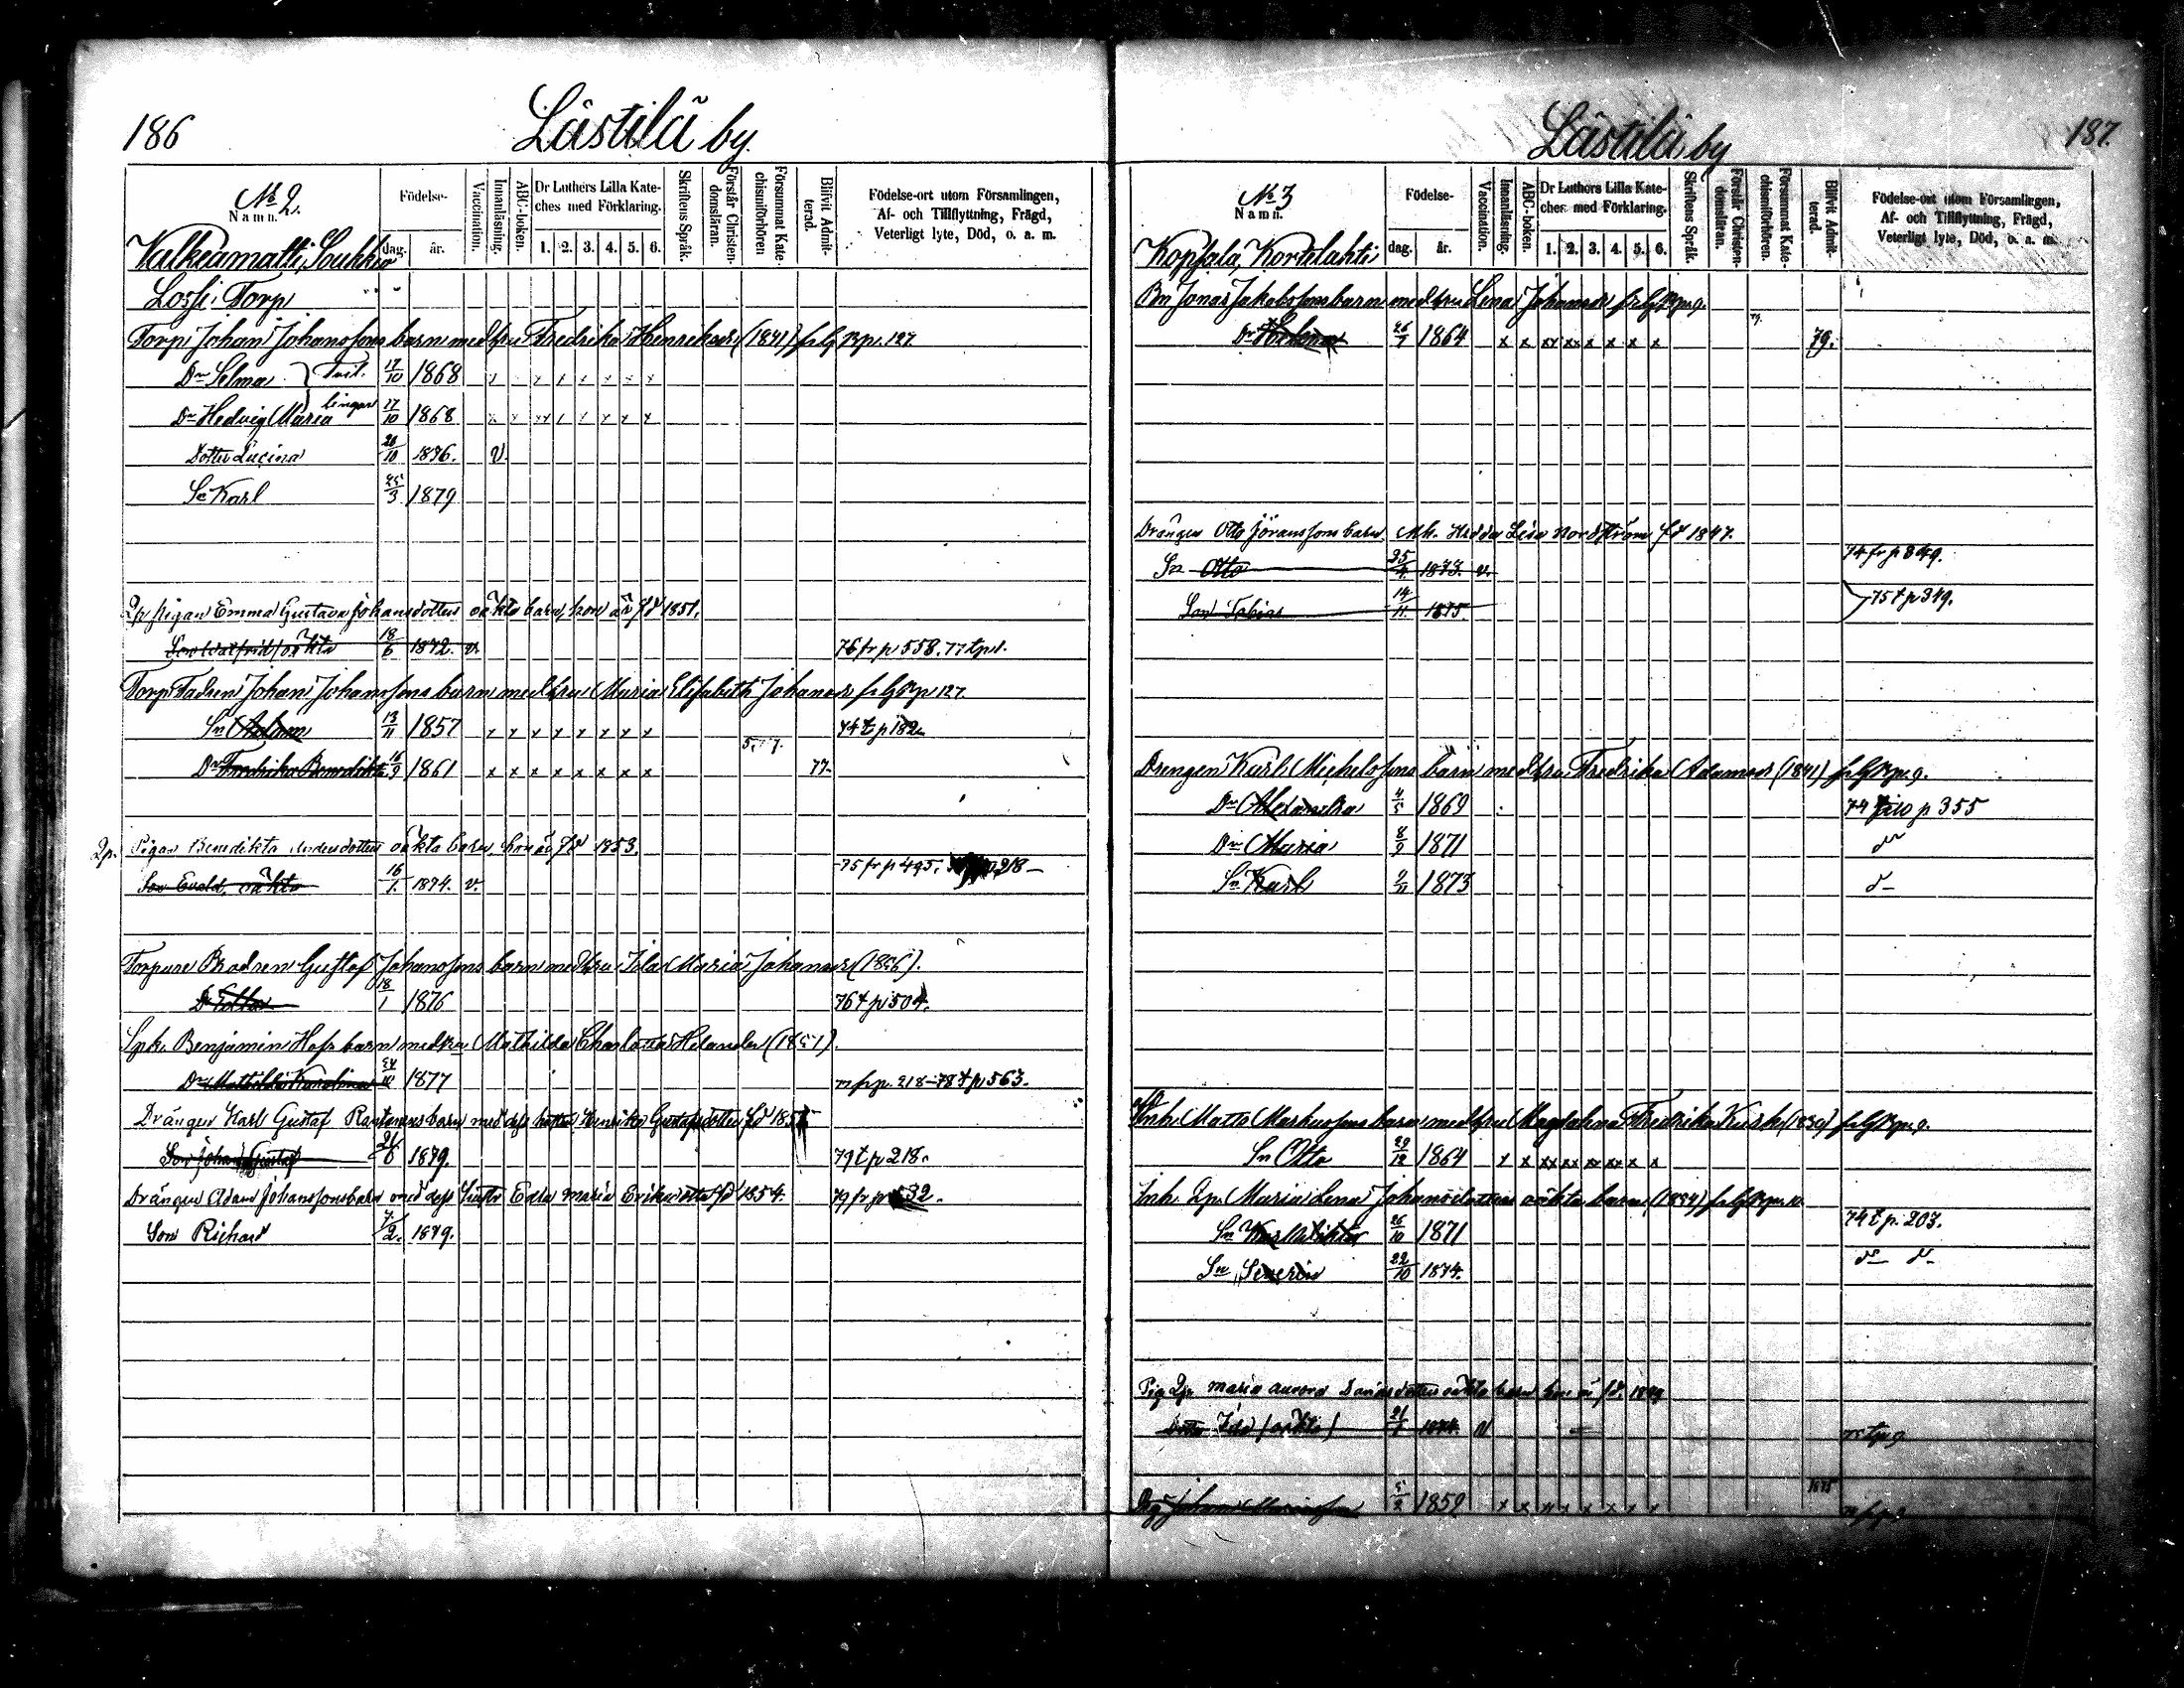 186
Lästilä by.
No 2.
Namn.
Födelse-
dag.
år.
Vaccination.
Innanläsning.
ABC-boken.
Dr Luthers Lilla Kate-
ches med Förklaring.
1. 2. 3. 4. 5. 6.
Skriftens Språk.
Förstår Christen-
domsläran.
Försummat Kate-
chismiförhören
Blifvit Admit-
terad.
Födelse-ort utom Församlingen,
Af- och Tillflyttning, Frägd,
Veterligt lyte, Död, o. a. m.
Valkeamatti, Soukkio
Torp
Torp. Johan Johanssons barn med hru Fredrika Henriksdr (1841) p. 127
Dr Selma Tvil. 17/10 1868 x x x x x x x
Dr Hedvig Maria lingar 17/10 1868 x x xx x x x x x
Dotter Lucina 20/10 1876. v.
Sn Karl 25/3 1879
Qp pigan Emma Gustava Johansdotters oäkta barn, hon är fd 1851.
oäkta 18/6 1872. v. 76 fr p 558. 77 t p
Torp. Fadren Johan Johanssons barn med hru Maria Elisabeth Johansdr p. 127.
Sn Adam 13/11 1857 x x x x x x x x 74 t p 182
Dr Fredrika Benedikta 16/9 1861 x x x x x x x x 77
Qp. Pigan Benedikta dotters oäkta barn, hon är fd 1853.
Son Evald, oäkta 16/1. 1874. v. 75 fr p 495. 218
Torpare Brodren Gustaf Johanssons barn med hru Maria Johansdr (1856).
18/1 1876 76 t p 504.
Spk. Benjamin barn med hru Mathilda Charlotta Helander (1851).
Dr Mathilda Karolina 24/10 1877 77 fr p. 218 - 78 t p 563.
Drängen Karl Gustaf barn med dess hustru Henrika Gustafsdotter fd
Son Johan Gustaf 1879. 79 t p 218.
Drängen Adam Johanssons barn med dess hustru Edla Maria fd 1854. 79 fr p
Son Richard 7/2. 1879.
187.
Lästilä by
No 3
Namn.
Födelse-
dag.
år.
Vaccination.
Innanläsning.
ABC-boken.
Dr Luthers Lilla Kate-
ches med Förklaring.
1. 2. 3. 4. 5. 6.
Skriftens Språk.
Förstår Christen-
domsläran.
Försummat Kate-
chismiförhören.
Blifvit Admit-
terad.
Födelse-ort utom Församlingen,
Af- och Tillflyttning, Frägd,
Veterligt lyte, Död, o. a. m.
Kortelahti
Bn Jonas Jakobssons barn med hru Lena Johansdr p. 9.
Dr 26/7 1864 x x xx xx x x x x 79.
Drängen Otto Jöranssons barn, Hedda Lisa Nordström fd 1847.
Sn Otto 25/4. 1873. v. 74 fr p 349.
Son Tobias 14/11. 1875. 75 t p 349.
Drengen Karl Michelssons barn med hru Fredrika Adamsdr (1841) p. 9.
Dr Alexandra 4/5 1869 74 p 355
Dr Maria 8/9 1871
Sn Karl 9/11 1873
Inh. Matts Markussons barn med hru Magdalena Fredrika (1830) p. 9.
Sn Otto 29/12 1864 x x xx xx xx xx x x
Inh. Qp. Maria Lena Johansdotters oäkta barn (1854) p. 10
Sn Karl Viktor 26/10 1871 74 t p. 203.
Sn Severin 22/10 1874.
Pig Qp. Maria Aurora dotters oäkta barn hon är fd. 1849
Dotter Ida (oäkta) 21/1 1874. v
Johan 5/2 1859 x x xx x x x x x 1875